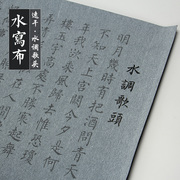 水寫布
速干·水調歌头
水調歌頭
明月幾時有把酒問青天
不知天上宮闕今夕是何
欲乘風歸去又恐
宇高處不勝寒起